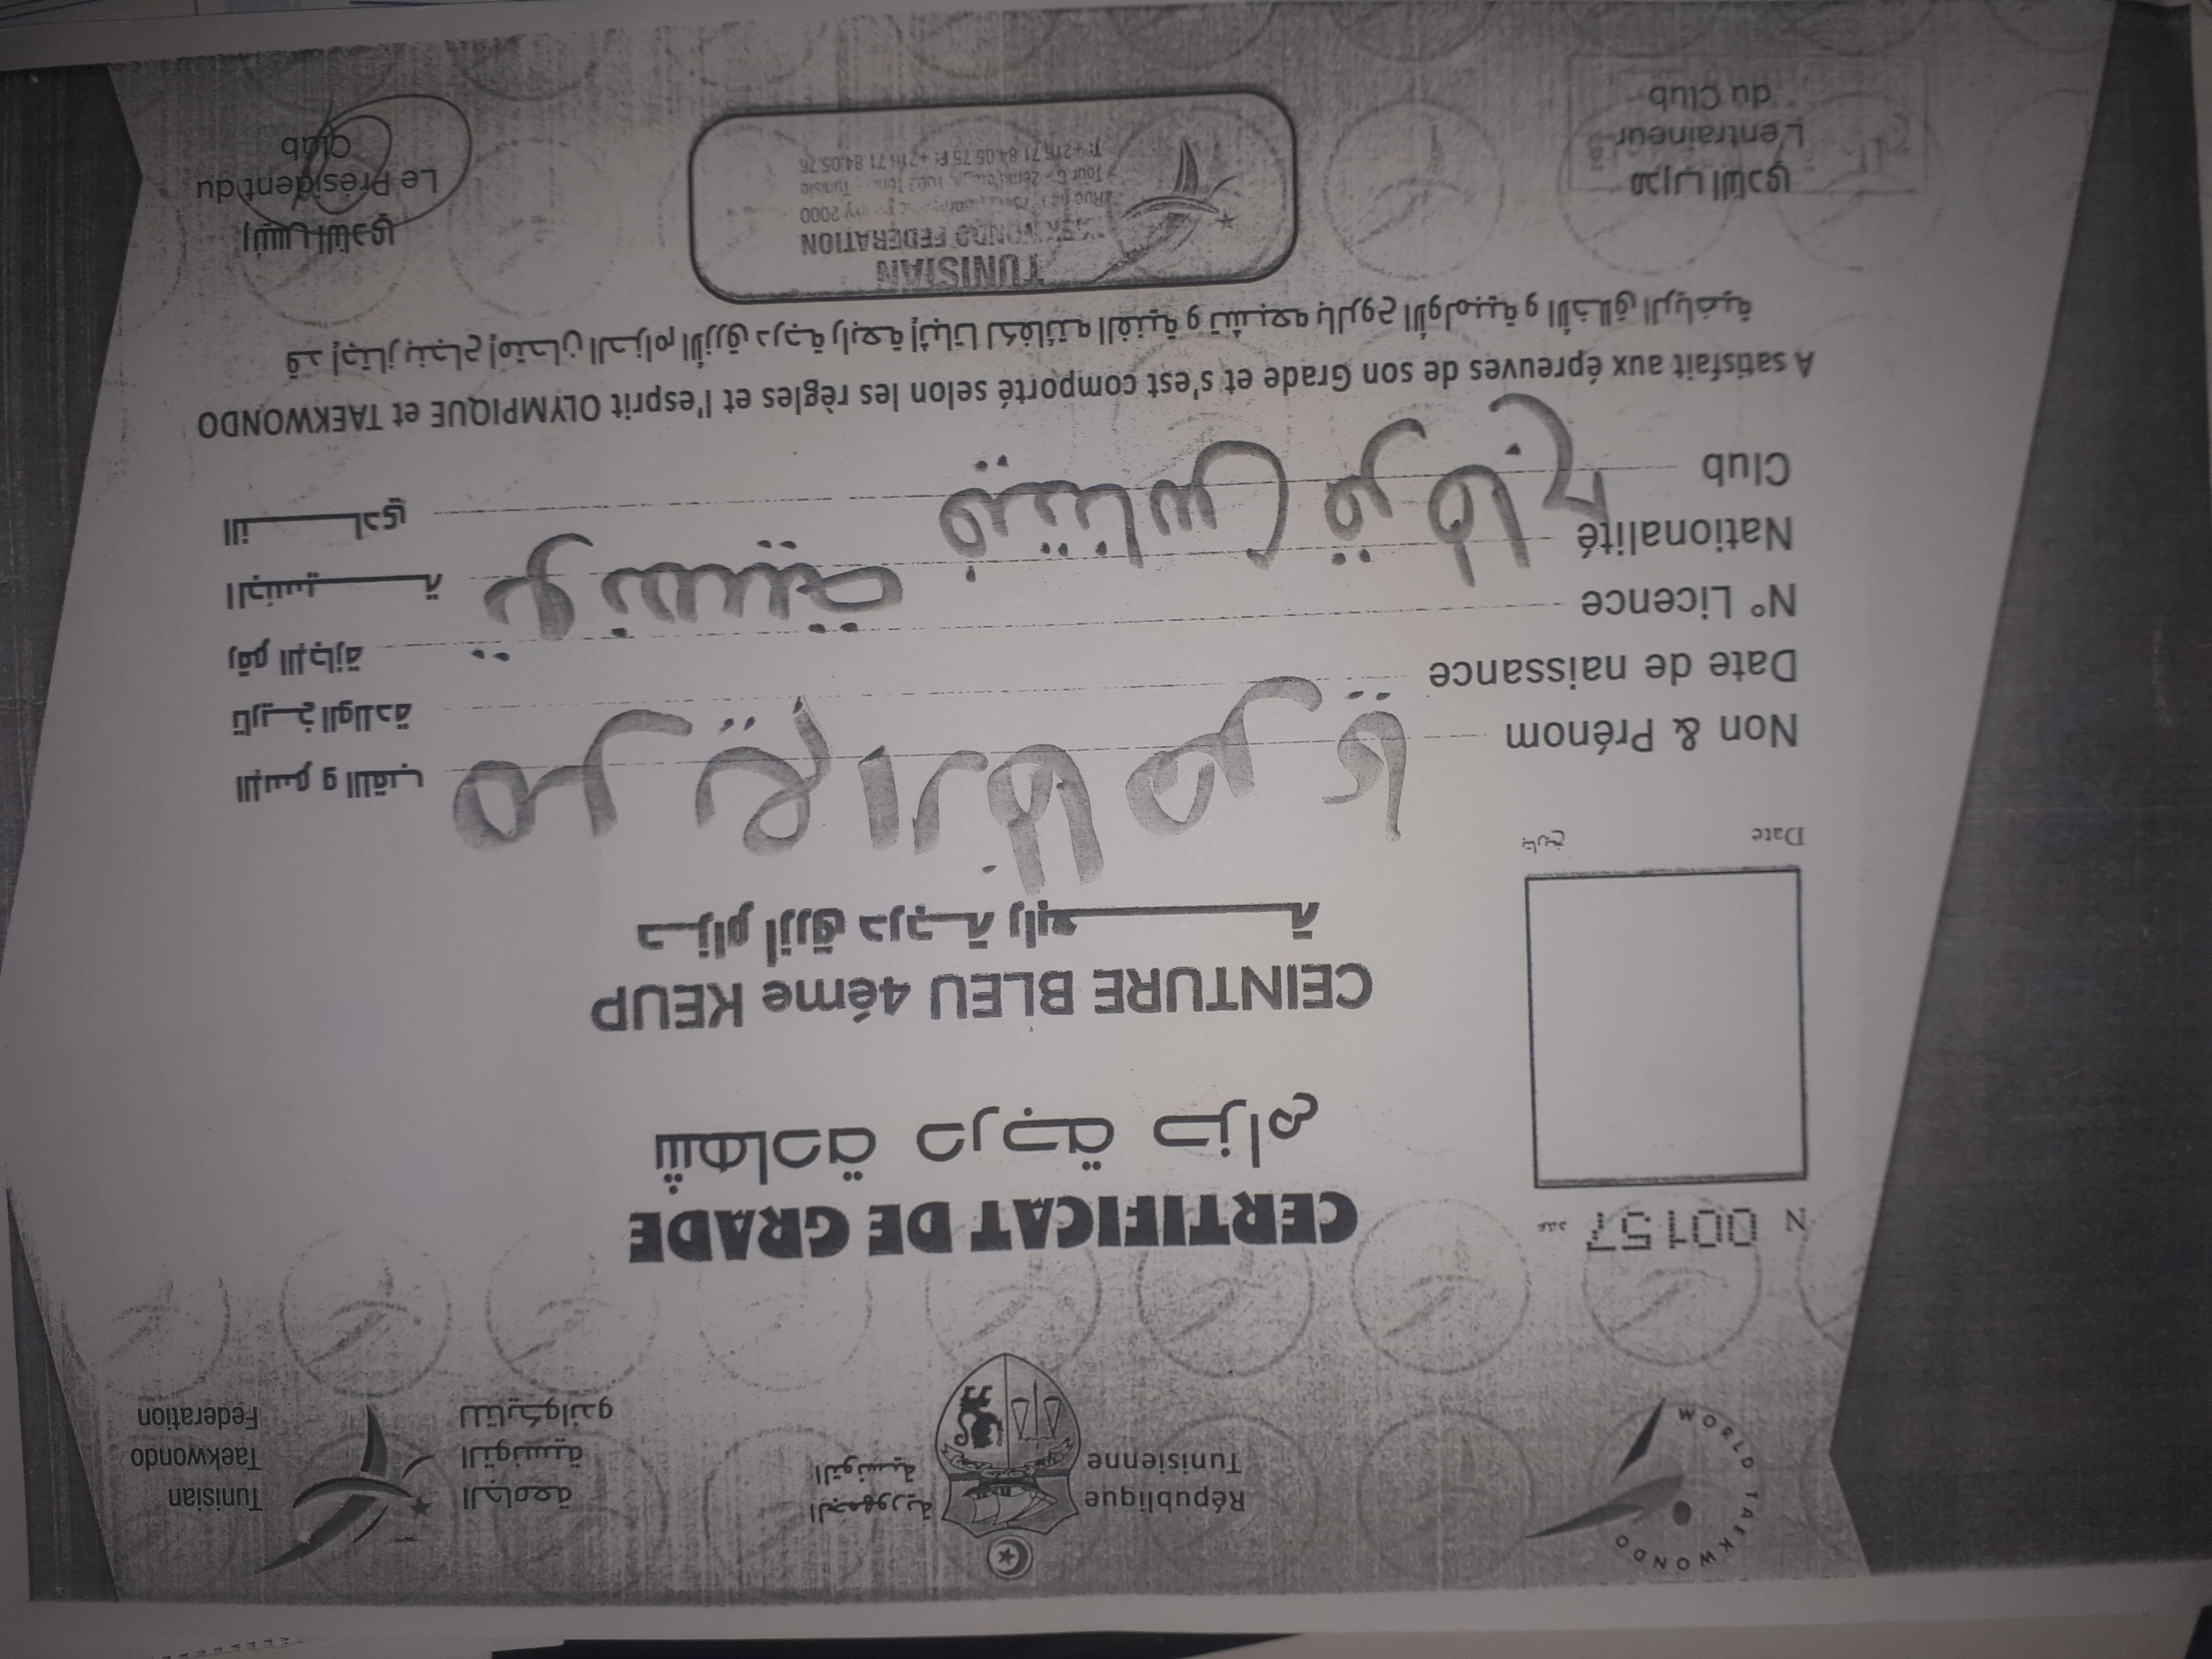 WORLD TAEKWONDO
République
Tunisienne
الجمهورية
التونسية
الجامعة
التونسية
للتايكواندو
Tunisian
Taekwondo
Federation
N 00157 عدد
CERTIFICAT DE GRADE
شهادة درجة حزام
CEINTURE BLEU 4éme KEUP
حزام أزرق درجة رابعة
Date تاريخ
Non & Prénom الإسم و اللقب
Date de naissance تاريخ الولادة
N° Licence رقم الإجازة
Nationalité تونسية الجنسية
Club النادي
A satisfait aux épreuves de son Grade et s'est comporté selon les règles et l'esprit OLYMPIQUE et TAEKWONDO
قد إجتاز بنجاح إمتحان الحزام الأزرق درجة رابعة إثباتا لكفائته الفنية و تشبعه بالروح الأولمبية و الأخلاق الرياضية
مدرب النادي
L'entraineur
du Club
TUNISIAN
TAEKWONDO FEDERATION
T: +216 71 84 05 75 F: +216 71 84 05 76
رئيس النادي
Le Président du
Club